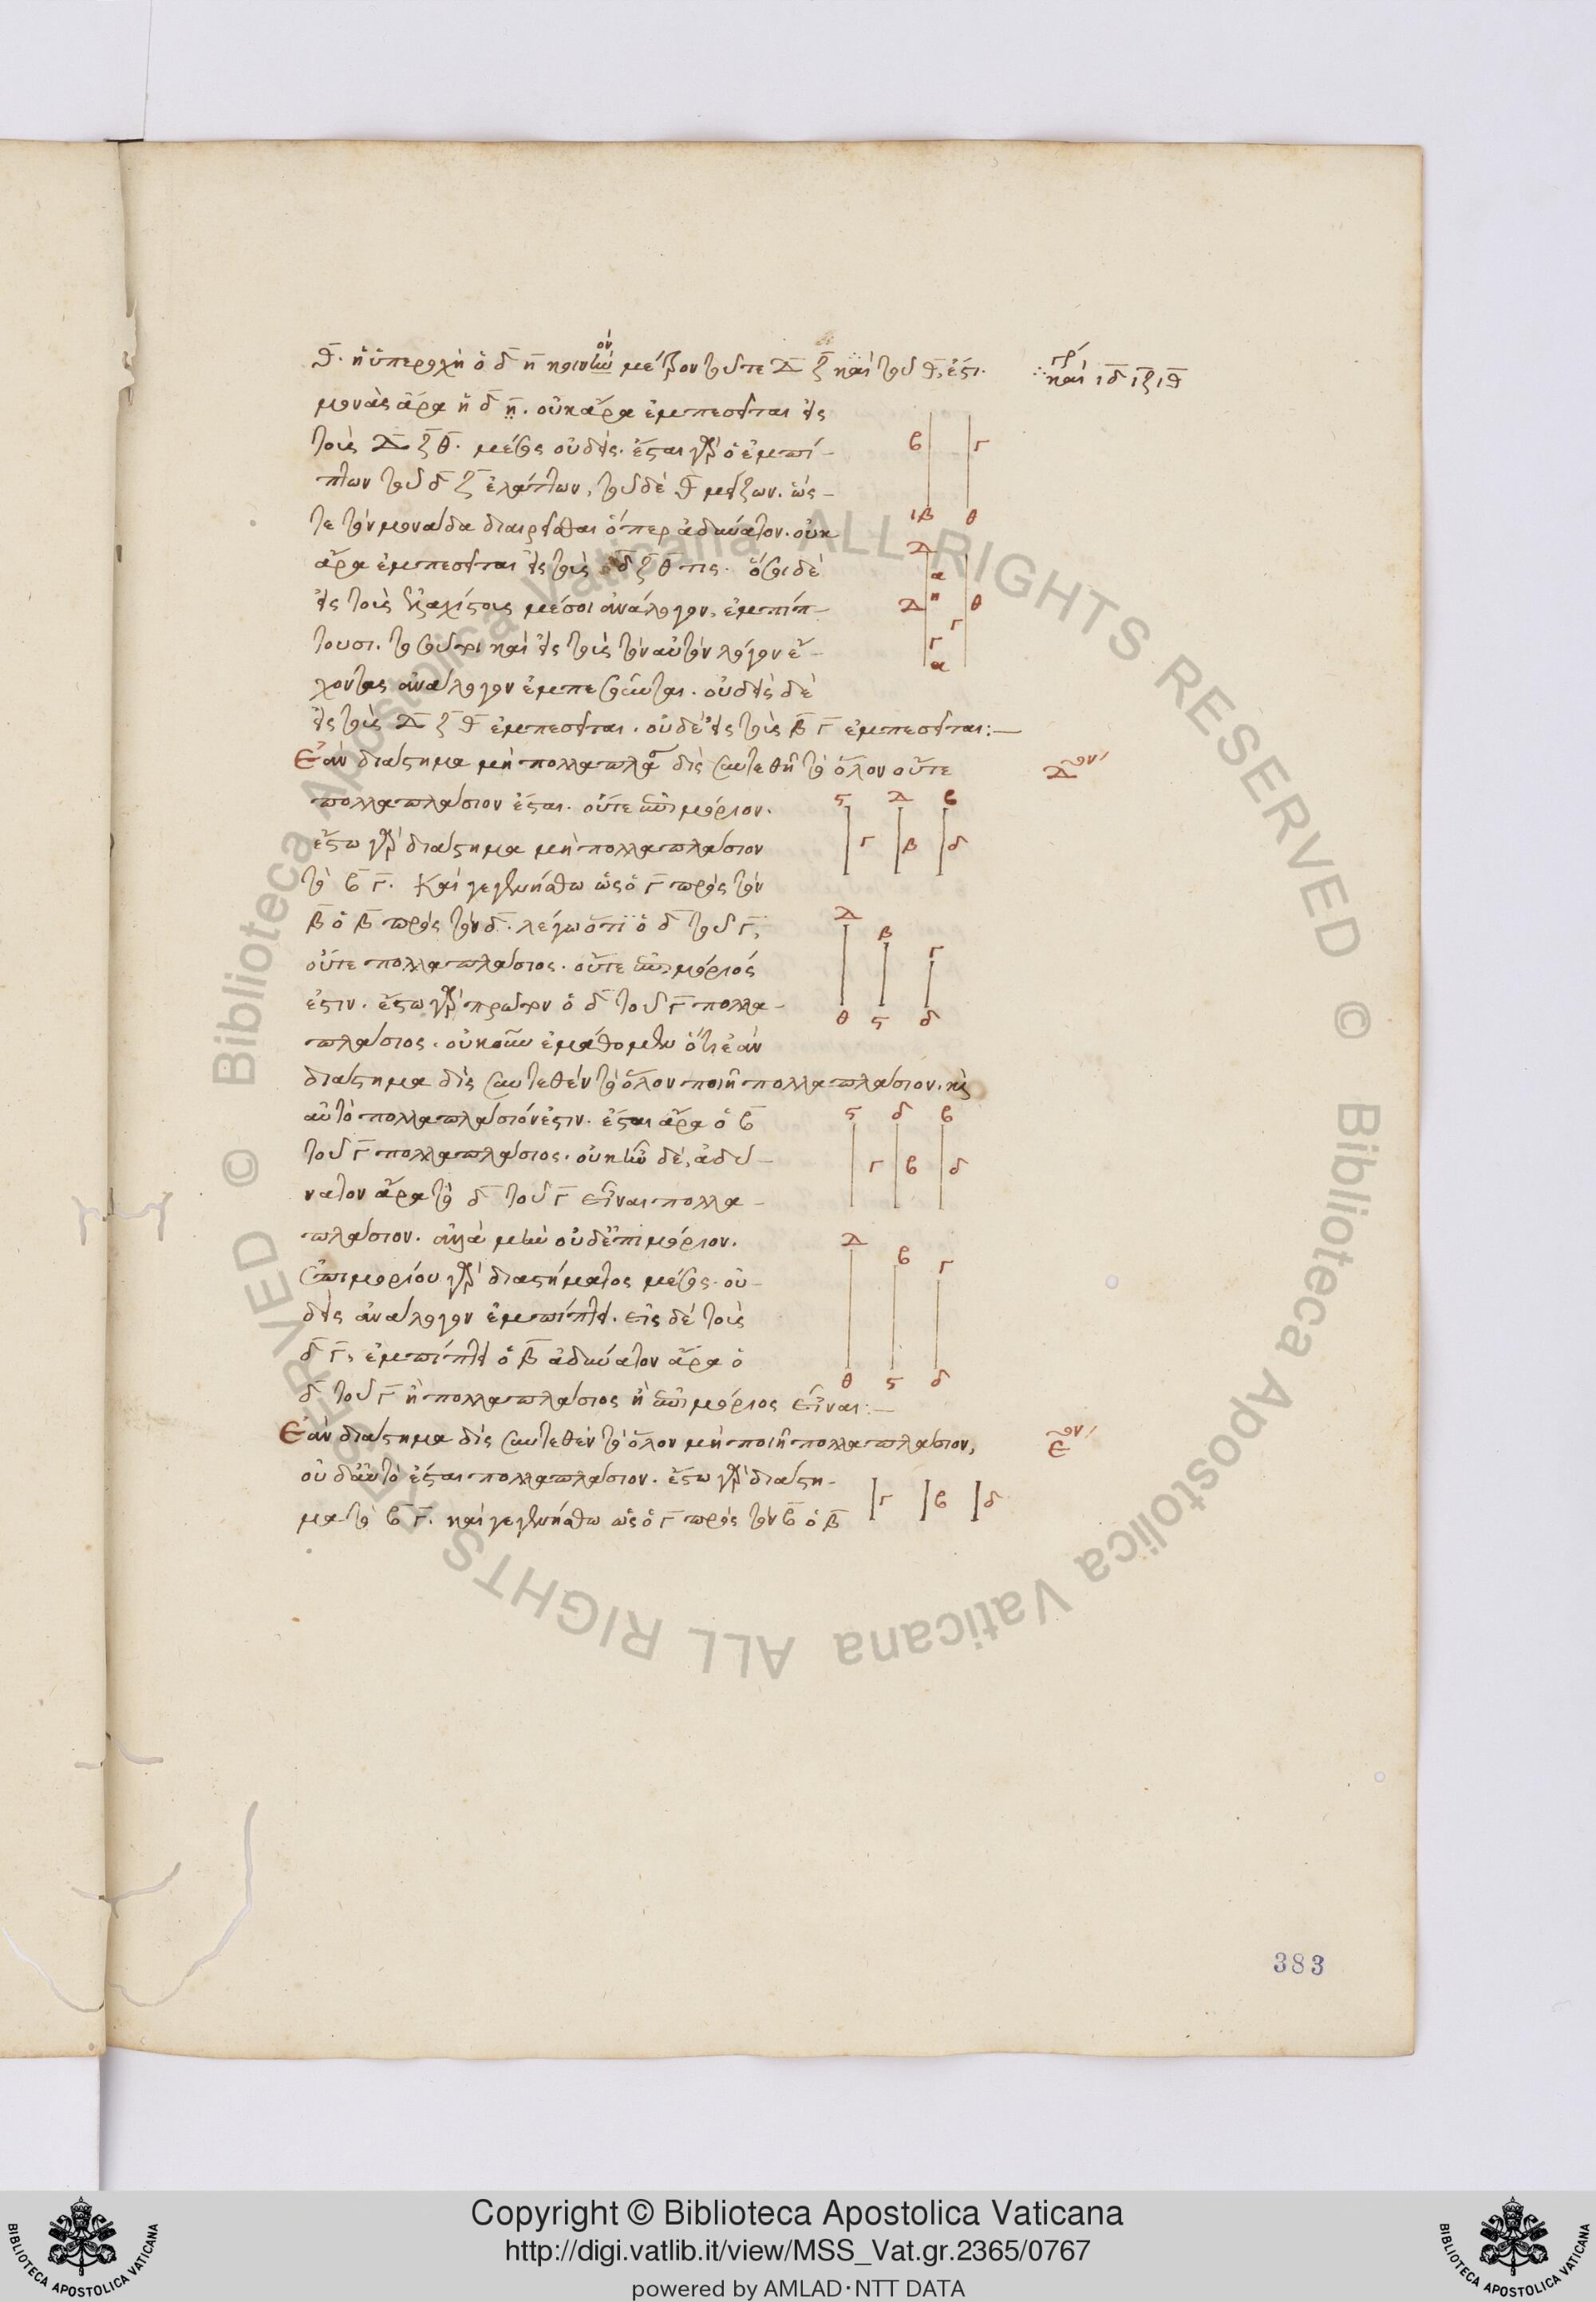 θ. ἡ ὑπεροχὴ ὁ δ η κοινὸν μέτρον τοῦ τε δ ζ καὶ τοῦ θ, ἐστι.
γρ καὶ ιδ ιζ ιθ
μονὰς ἄρα ἡ δ η. οὐκ ἄρα ἐμπεσεῖται εἰς
τοὺς δ ζ θ. μέσος οὐδείς. ἔσται γὰρ ὁ ἐμπί-
πτων τοῦ δ ζ ἐλάττων, τοῦ δὲ θ μείζων. ὥσ-
τε τὴν μονάδα διαιρεῖσθαι ὅπερ ἀδύνατον. οὐκ
ἄρα ἐμπεσεῖται εἰς τοὺς δ ζ θ τις. ὅσοι δὲ
εἰς τοὺς ἐλαχίστους μέσοι ἀνάλογον, ἐμπίπ-
τουσι. τοσοῦτοι καὶ εἰς τοὺς τὸν αὐτὸν λόγον ἔ-
χοντας ἀνάλογον ἐμπεσοῦνται. οὐδεὶς δὲ
εἰς τοὺς δ ζ θ ἐμπεσεῖται. οὐδὲ εἰς τοὺς β γ ἐμπεσεῖται:—
β γ
ιβ θ
δ
α
δ η θ
γ
γ
α
Ἐὰν διάστημα μὴ πολλαπλα δὶς συντεθῆ τὸ ὅλον οὔτε
δον
πολλαπλάσιον ἔσται. οὔτε ἐπιμόριον.
ἔστω γὰρ διάστημα μὴ πολλαπλάσιον
τὸ β γ. καὶ γεγενήσθω ὡς ὁ γ πρὸς τὸν
β ὁ β πρὸς τὸν δ. λέγω ὅτι ὁ δ τοῦ γ,
οὔτε πολλαπλάσιος. οὔτε ἐπιμόριός
ἐστιν. ἔστω γὰρ πρῶτον ὁ δ τοῦ γ πολλα-
πλάσιος. οὐκοῦν ἐμάθομεν ὅτι ἐὰν
διάστημα δὶς συντεθὲν τὸ ὅλον ποιῆ πολλαπλάσιον. καὶ
ϛ δ β
γ β δ
δ β γ
θ ϛ δ
αὐτὸ πολλαπλάσιόν ἐστιν. ἔσται ἄρα ὁ β
τοῦ γ πολλαπλάσιος. οὐκ ἦν δέ, ἀδύ-
νατον ἄρα τὸ δ τοῦ γ εἶναι πολλα-
πλάσιον. ἀλλὰ μὴν οὐδ' ἐπιμόριον.
ἐπιμορίου γὰρ διαστήματος μέσος. οὐ-
δεὶς ἀνάλογον ἐμπίπτει. εἰς δὲ τοὺς
δ γ, ἐμπίπτει ὁ β ἀδύνατον ἄρα ὁ
δ τοῦ γ ἢ πολλαπλάσιος ἢ ἐπιμόριος εἶναι:—
ϛ δ β
γ β δ
δ β γ
θ ϛ δ
Ἐὰν διάστημα δὶς συντεθὲν τὸ ὅλον μὴ ποιῆ πολλαπλάσιον,
εον
οὐδ' αὐτὸ ἔσται πολλαπλάσιον. ἔστω γὰρ διάστη-
μα τὸ β γ. καὶ γεγενήσθω ὡς ὁ γ πρὸς τὸν β ὁ β
γ β δ
383
© Biblioteca Apostolica Vaticana ALL RIGHTS RESERVED © Biblioteca Apostolica Vaticana ALL RIGHTS RESERVED
Copyright © Biblioteca Apostolica Vaticana
http://digi.vatlib.it/view/MSS_Vat.gr.2365/0767
powered by AMLAD·NTT DATA
BIBLIOTECA APOSTOLICA VATICANA
BIBLIOTECA APOSTOLICA VATICANA